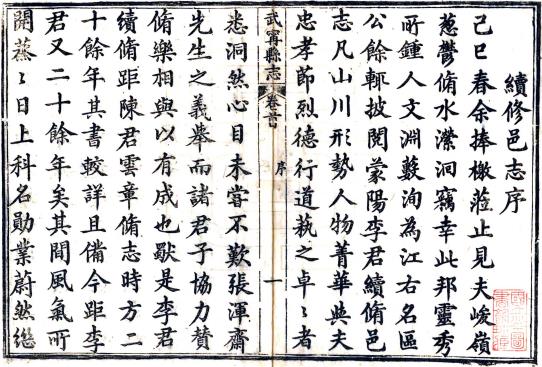 續修邑志序
己巳春余捧檄蒞止見夫峻嶺
蔥鬱脩水瀠洄竊幸此邦靈秀
所鍾人文淵藪洵為江右名區
公餘輒披閱蒙陽李君續脩邑
志凡山川形勢人物菁華與夫
忠孝節烈德行道藝之卓〻者
武寧縣志
卷首
序
一
悉洞然心目未嘗不歎張渾齋
先生之義舉而諸君子協力贊
脩樂相與以有成也歟是李君
續脩距陳君雲章脩志時方二
十餘年其書較詳且備今距李
君又二十餘年矣其間風氣所
開蒸〻日上科名勛業蔚然繼